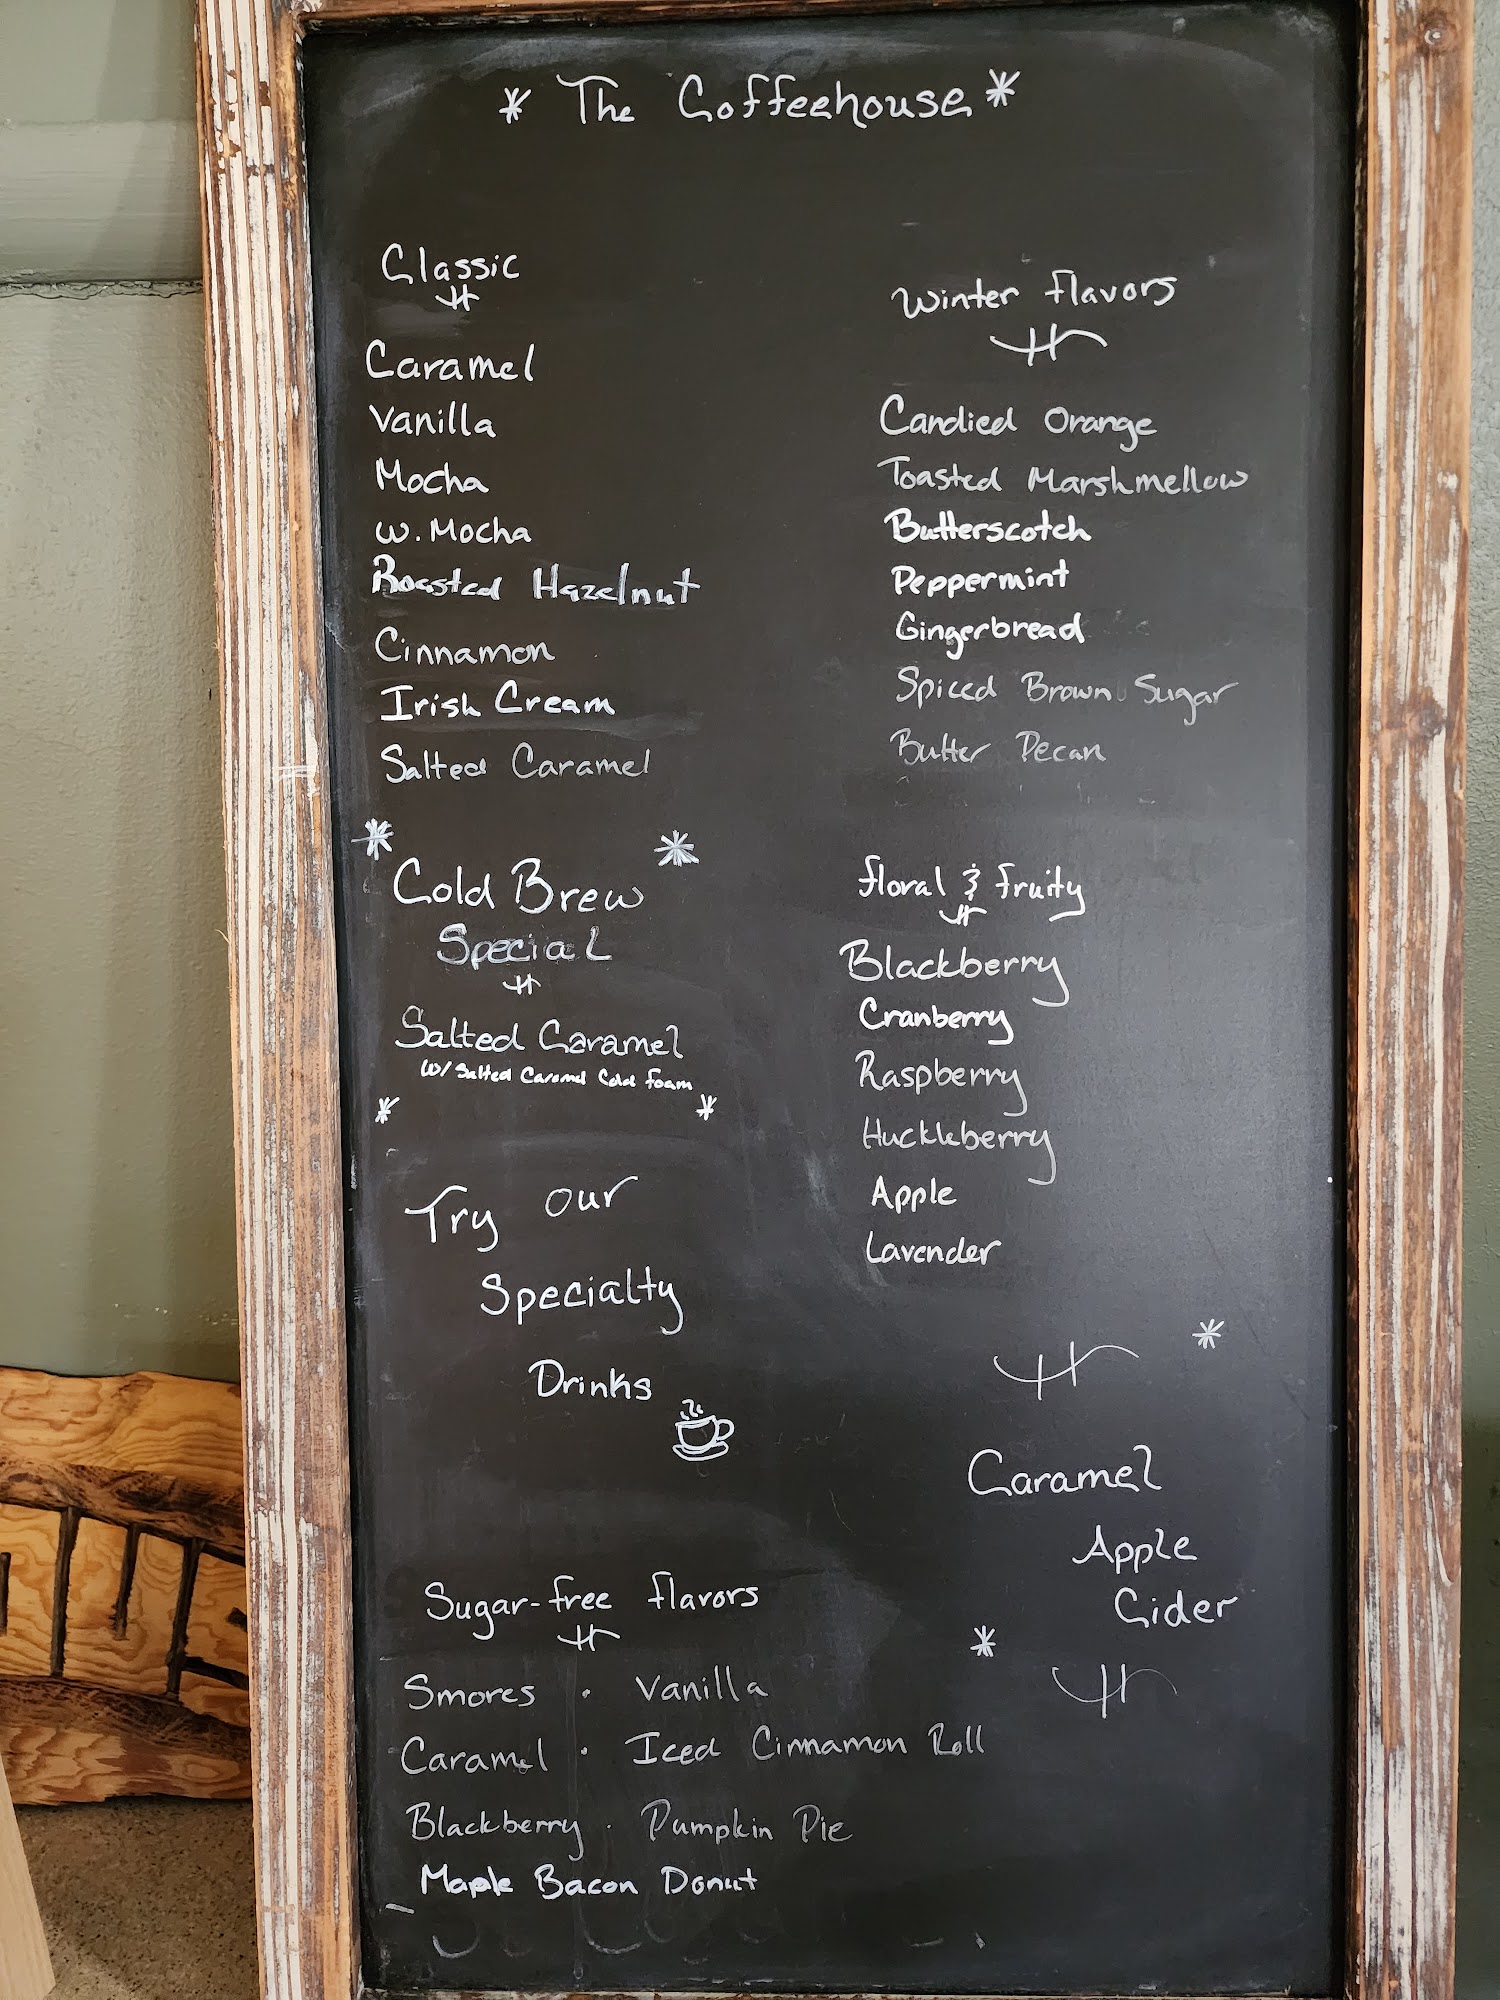 * The Coffeehouse *
Classic
Caramel
Vanilla
Mocha
W. Mocha
Roasted Hazelnut
Cinnamon
Irish Cream
Salted Caramel
Cold Brew
Special
Salted Caramel
w/ Salted Caramel Cold Foam
Try our
Specialty
Drinks
Winter flavors
Candied Orange
Toasted Marshmellow
Butterscotch
Peppermint
Gingerbread
Spiced Brown Sugar
Butter Pecan
floral & fruity
Blackberry
Cranberry
Raspberry
Huckleberry
Apple
Lavender
Caramel
Apple
Cider
Sugar-free flavors
Smores · Vanilla
Caramel · Iced Cinnamon Roll
Blackberry · Pumpkin Pie
Maple Bacon Donut